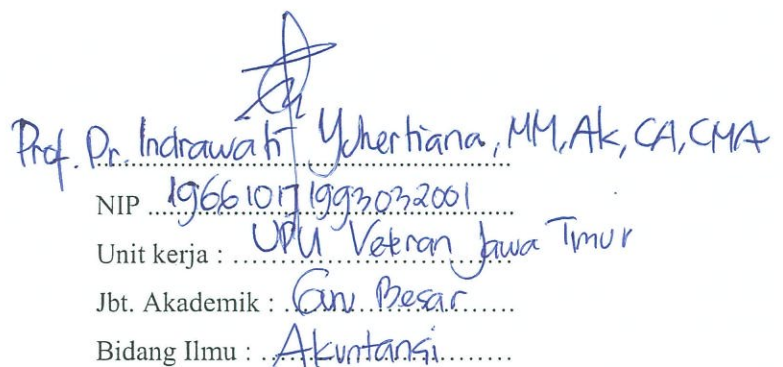 Prof. Dr. Indrawati Yuhertiana, MM, Ak, CA, CMA
NIP ... 19661017 199303 2001
Unit kerja : UPN Veteran Jawa Timur
Jbt. Akademik : Guru Besar
Bidang Ilmu : Akuntansi